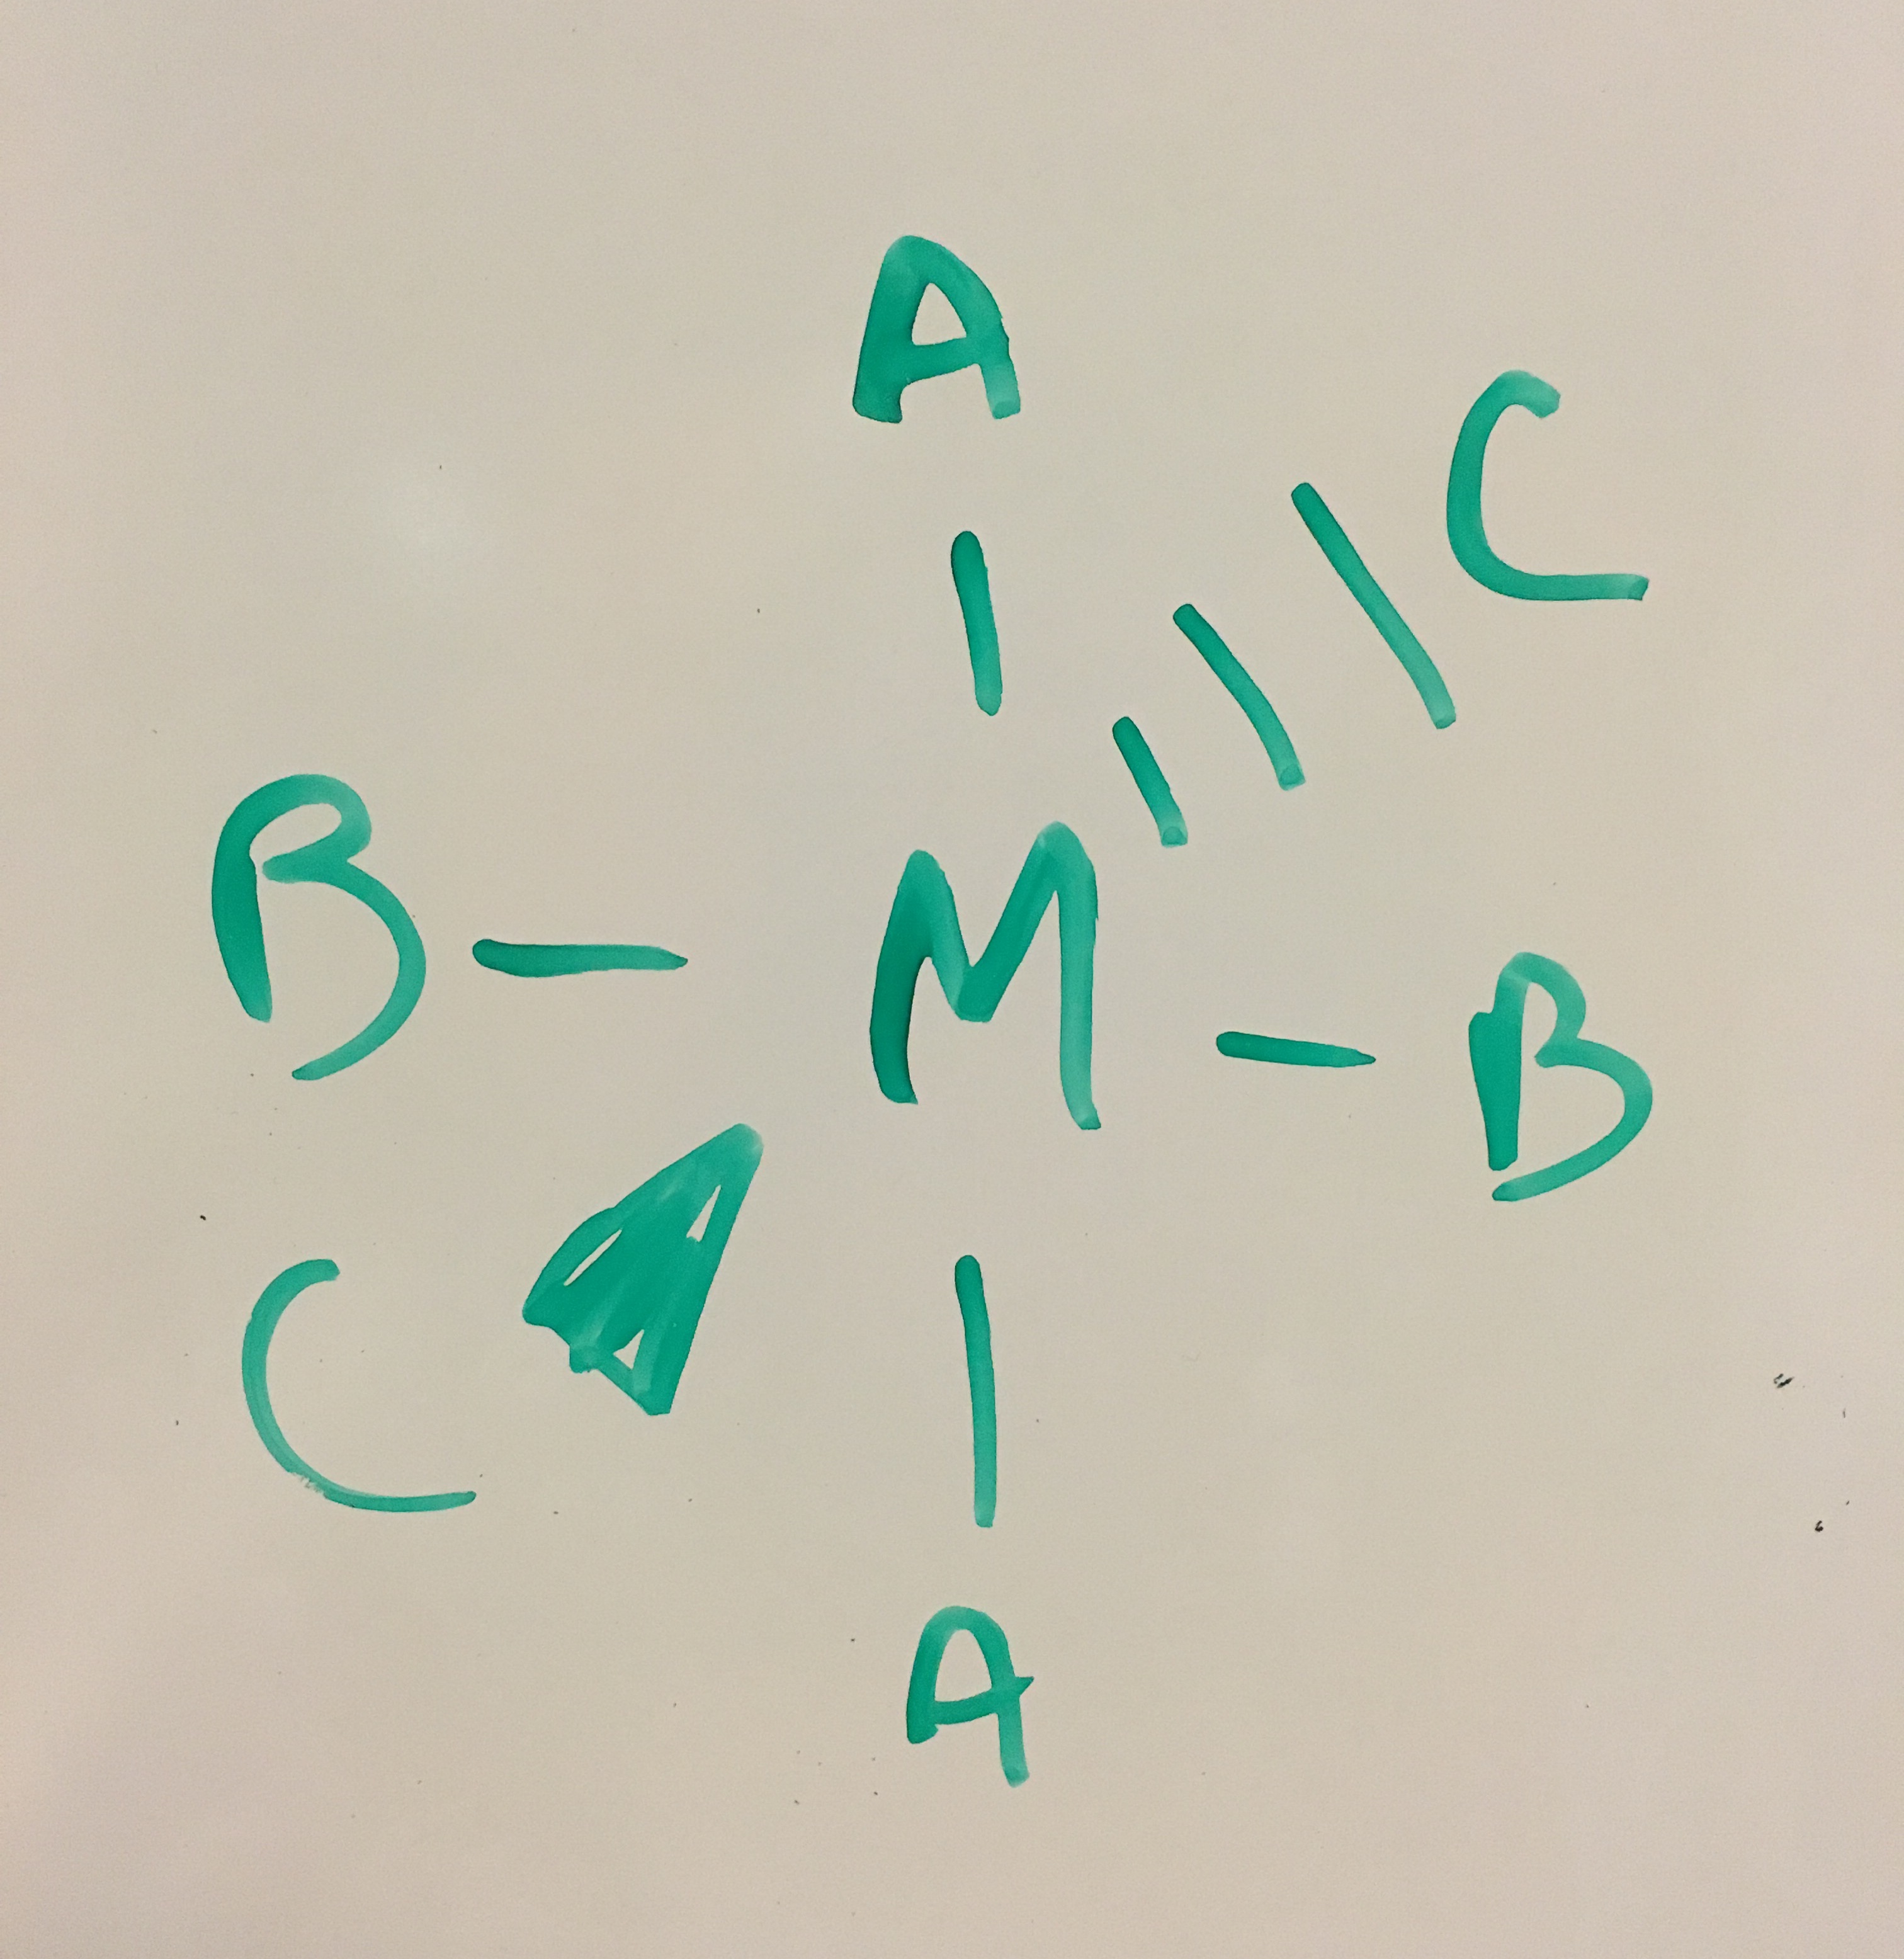 A
C
B M B
C
A